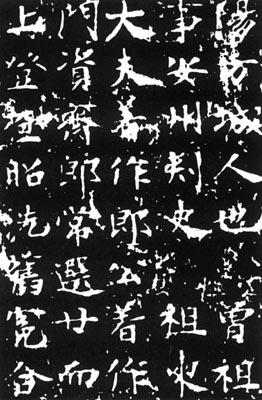 陽方城人也曾祖
事安州刺史祖
大夫著作郎公着作
門資齊郎常選廿而
上登昭洗舊冤合